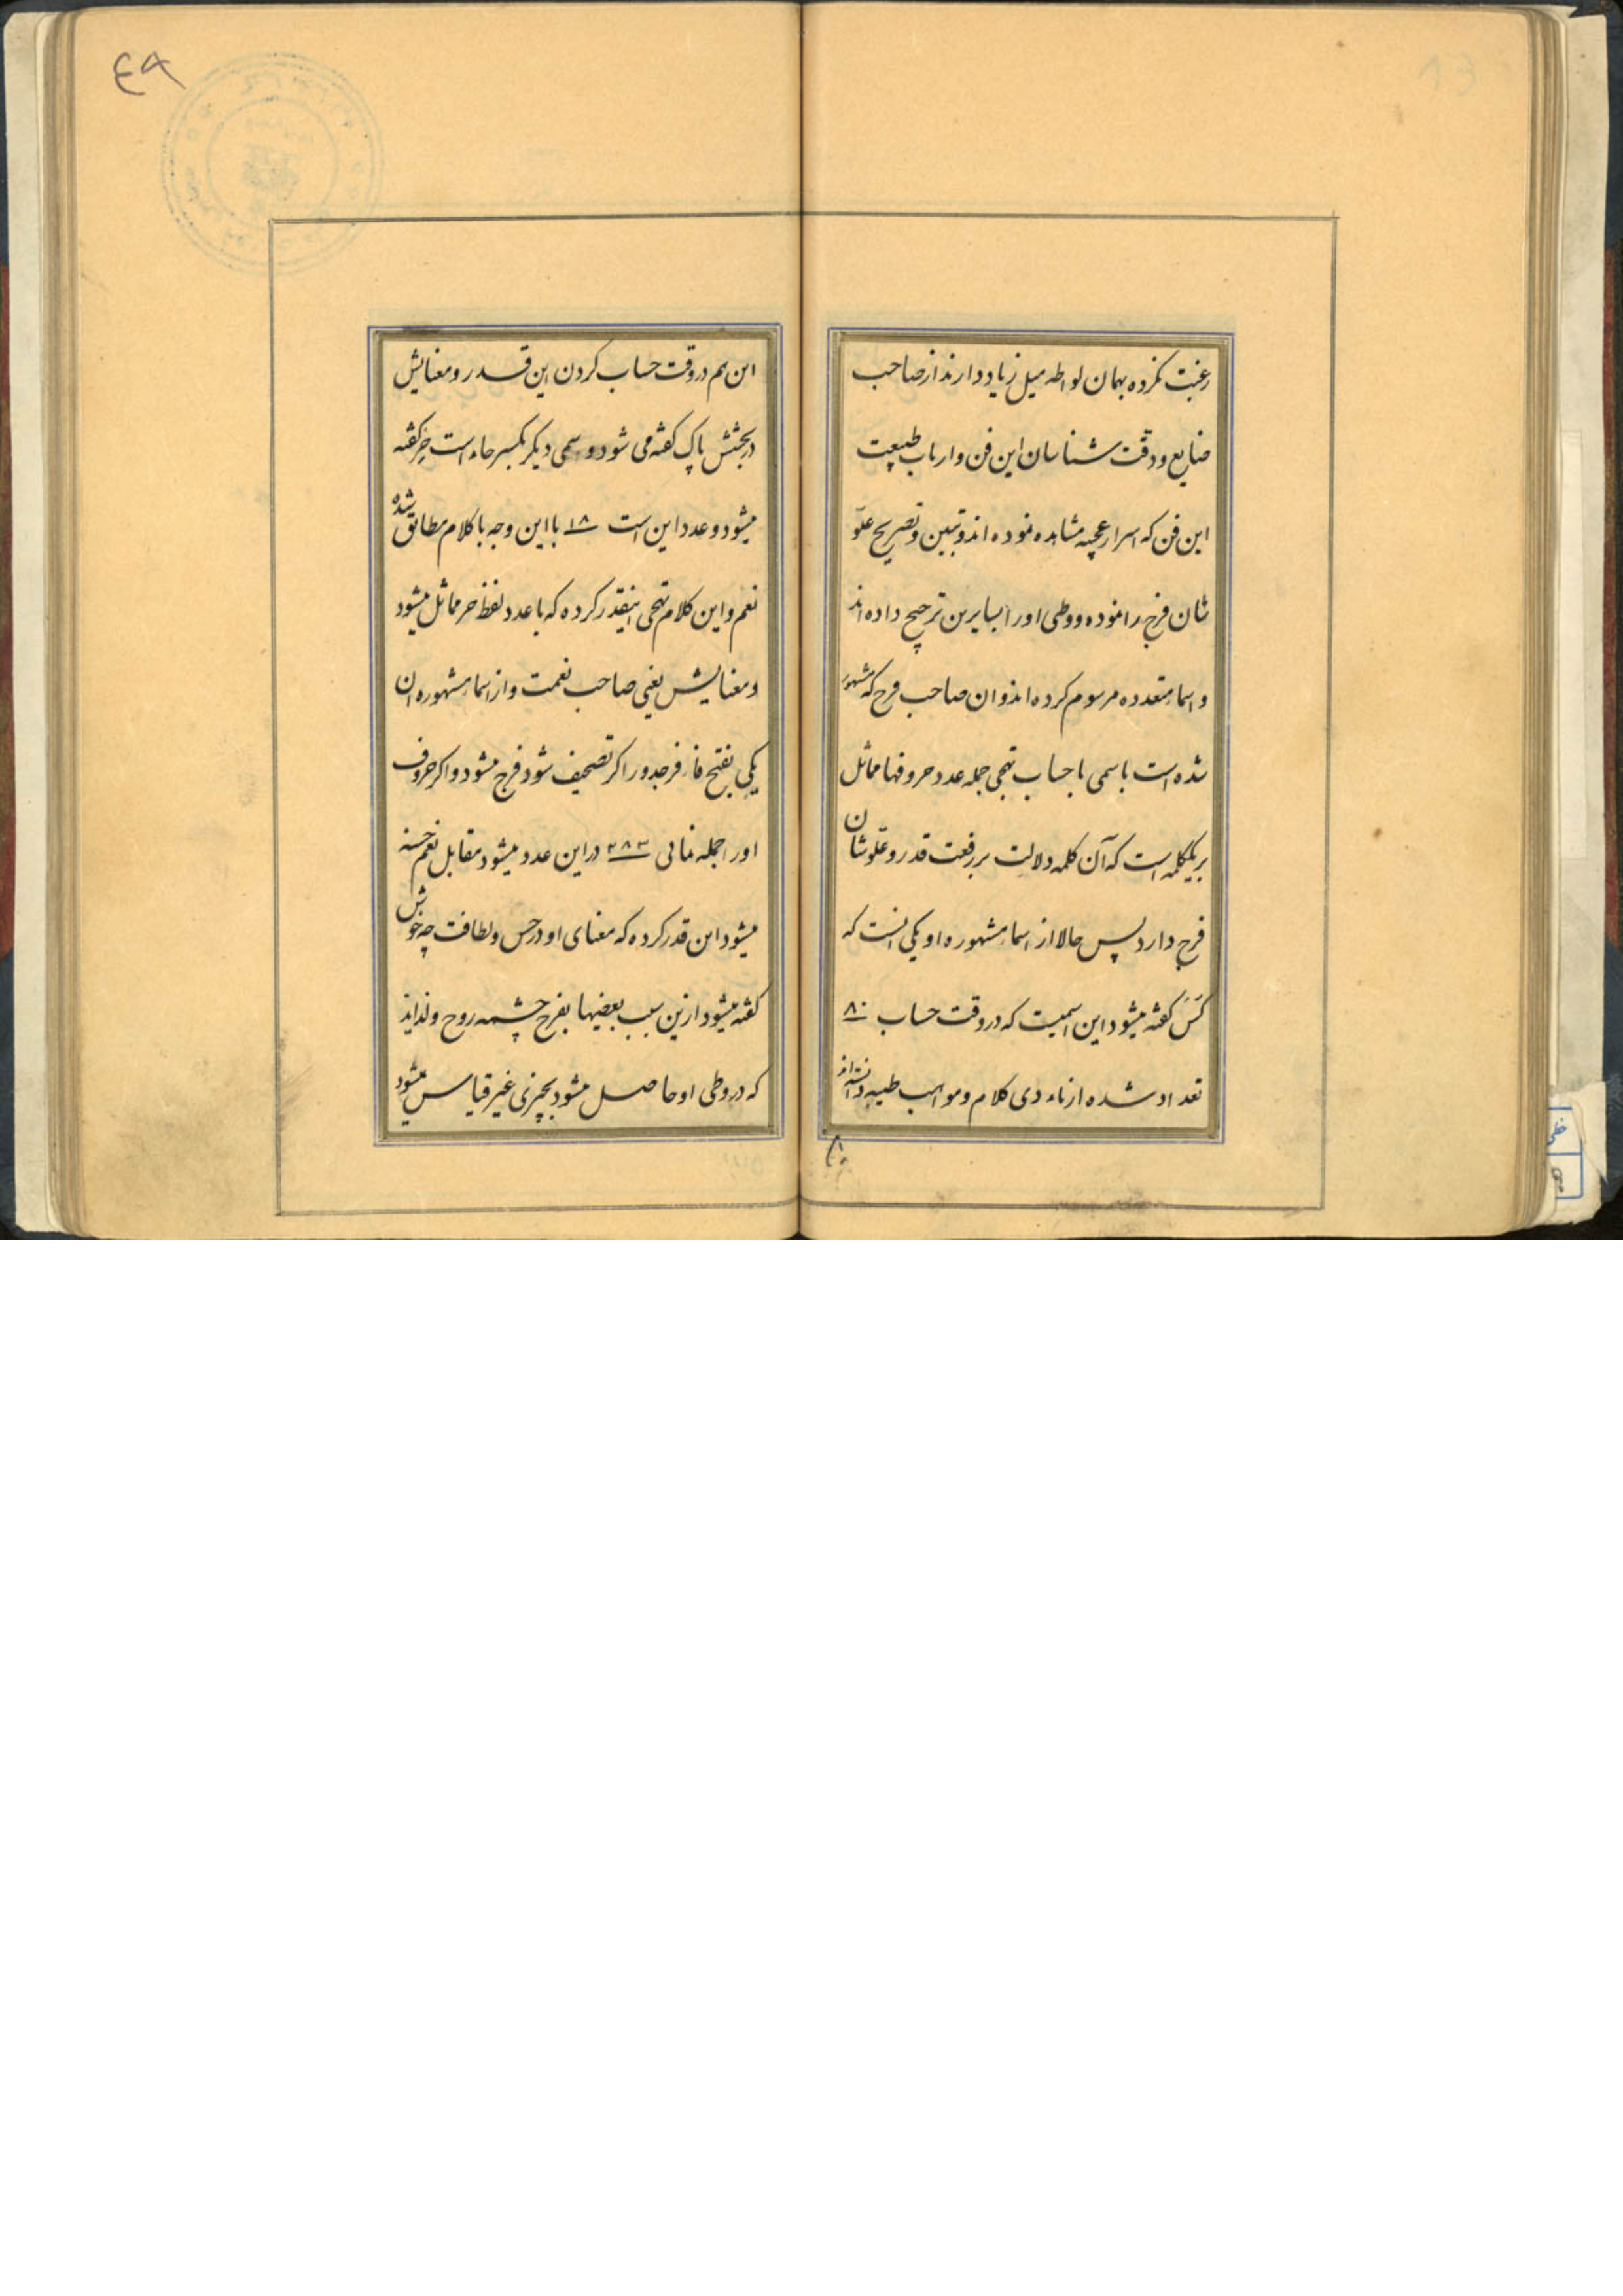 رغبت نکرده بهمان لواطه میل زیاد دارند از صاحب
صنایع و دقت شناسان این فن و ارباب طبیعت
این فن که اسرار عجیبه مشاهده نموده اند و تبیین و تصریح علوّ
شان فرج را نموده و وطی او را بسایرین ترجیح داده اند
و اسماء متعدده مرسوم کرده اند و ان صاحب فرج که مشهور
شده است باسمی با حساب تهجی جمله عدد حروفها مماثل
بریکلمه است که آن کلمه دلالت بر رفعت قدر و علّو شان
فرج دارد پس حالا از اسماء مشهوره او یکی انست که
کَسَ گفته میشود این اسمیست که در وقت حساب ۸۰
تعداد شده از ناء دی کلام و مواهب طیبه دانسته اند
۸۰
۴۹
این هم در وقت حساب کردن این قدر و معنایش
در بخشش پاک گفته می شود و سمی دیگر بکسر حاء است حِر گفته
میشود و عدد این است ۱۸ با این وجه با کلام مطابق شده
نعم و این کلام تهجی اینقدر کرده که با عدد لفظ حر مماثل میشود
و معنایش یعنی صاحب نعمت و از اسماء مشهوره ان
یکی بفتح فاء فرجد و را کر تصحیف شود فرج میشود و اکر حروف
او را جمله نمائی ۲۸۳ در این عدد میشود مقابل نعم حسنه
میشود این قدر کرده که معنای او در حسن و لطافت چه خوش
گفته میشود ازین سبب بعضیها بفرج چشمه روح و لذایذ
که در وطی او حاصل میشود بچیزی غیر قیاس میشود